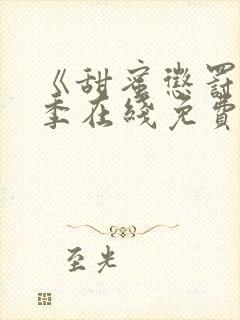 《甜蜜惩罚
季在线免费
至光